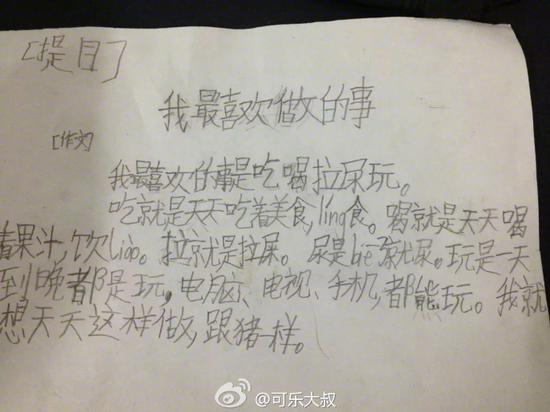 [提目]
我最喜欢做的事
[作文]
我最喜欢的事是吃喝拉尿玩。
吃就是天天吃着美食,ling食。喝就是天天喝
着果汁,饮liao。拉就是拉屎。尿是bie了就尿。玩是一天
到晚都是玩,电脑、电视、手机,都能玩。我就
想天天这样做,跟猪一样。
@可乐大叔